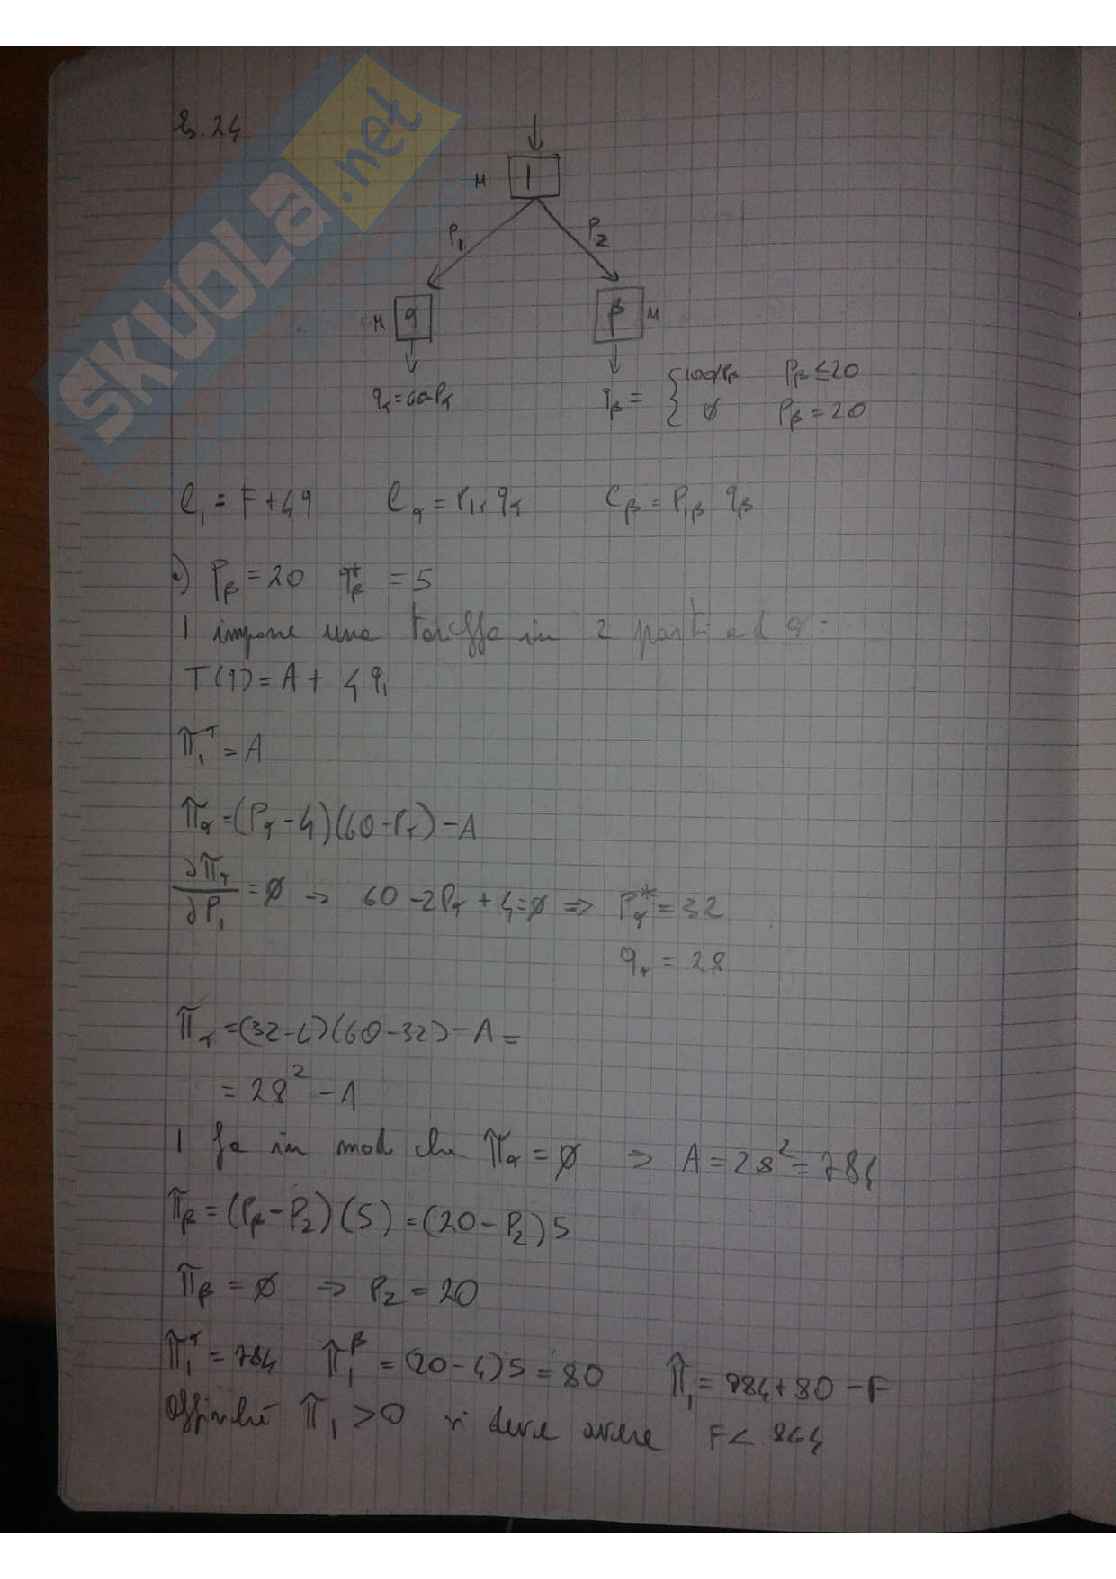 Es. 24
SKUOLA.net
M 1
P1 P2
M γ β M
qγ = 60-Pγ qβ = { 100/Pβ Pβ ≤ 20
∅ Pβ = 20
C1 = F + 4q Cγ = P1γ qγ Cβ = P1β qβ
Pβ = 20 = 5
1 impone una tariffa in 2 parti ad
T(q) = A + 4q1
π1^γ = A
πγ = (Pγ - 4)(60 - Pγ) - A
∂πγ/∂P1 = ∅ → 60 - 2Pγ + 4 = ∅ ⇒ Pγ* = 32
qγ = 28
πγ = (32-4)(60-32) - A =
= 28² - A
1 fa in modo che πγ = ∅ ⇒ A = 28² = 784
πβ = (Pβ - P2)(5) = (20 - P2)5
πβ = ∅ → P2 = 20
π1^γ = 784 π1^β = (20-4)5 = 80 π1 = 784 + 80 - F
Affinché π1 > 0 si deve avere F < 864